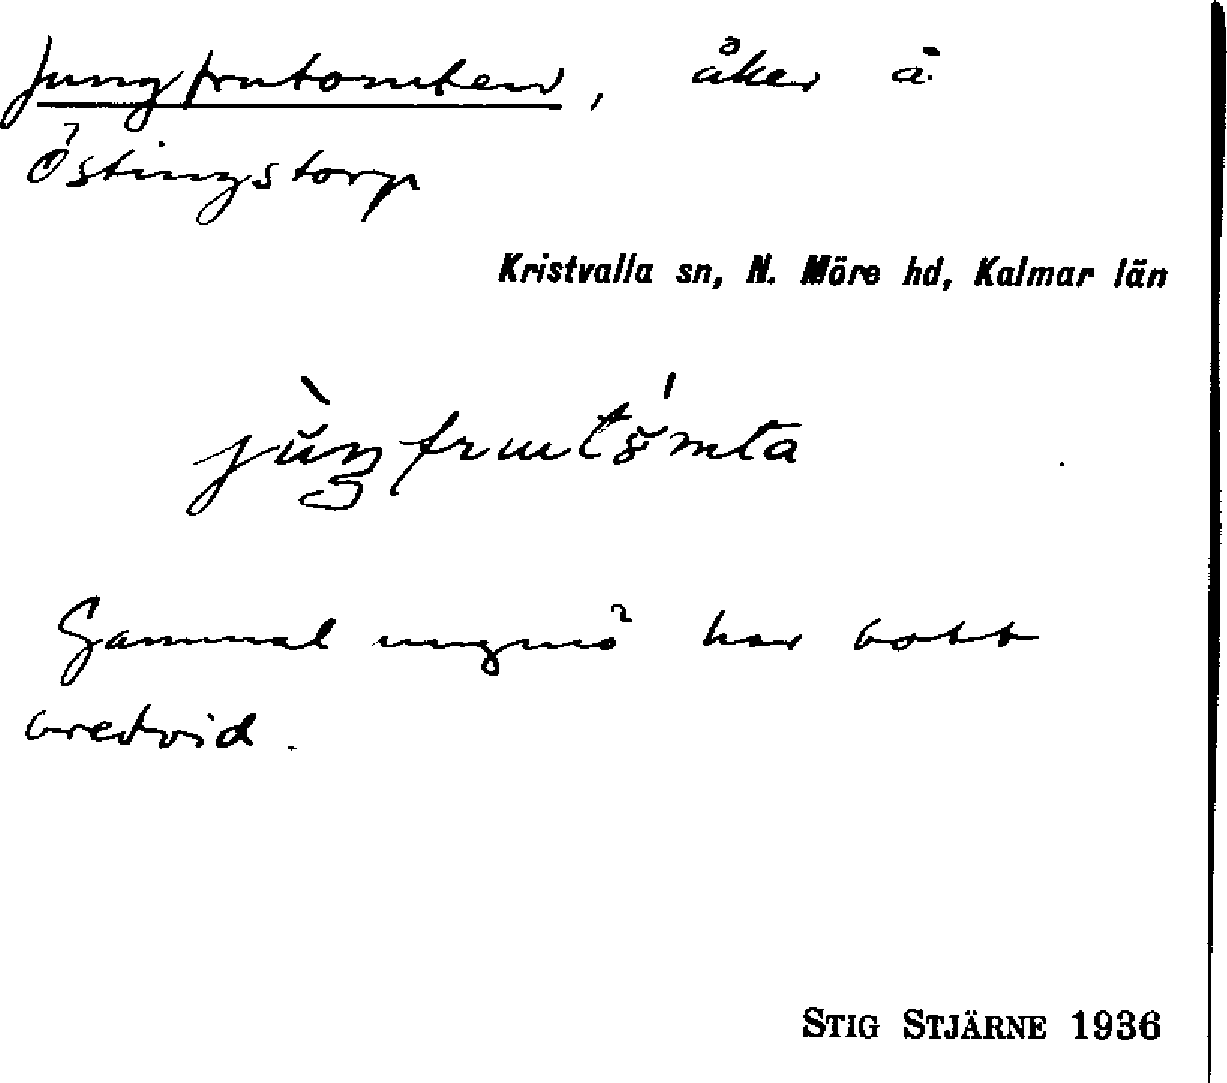 Jungfrutomten, åker å
Östingstorp
Kristvalla sn, N. Möre hd, Kalmar län
Gammal ungmö har bott
bredvid.
STIG STJÄRNE 1936